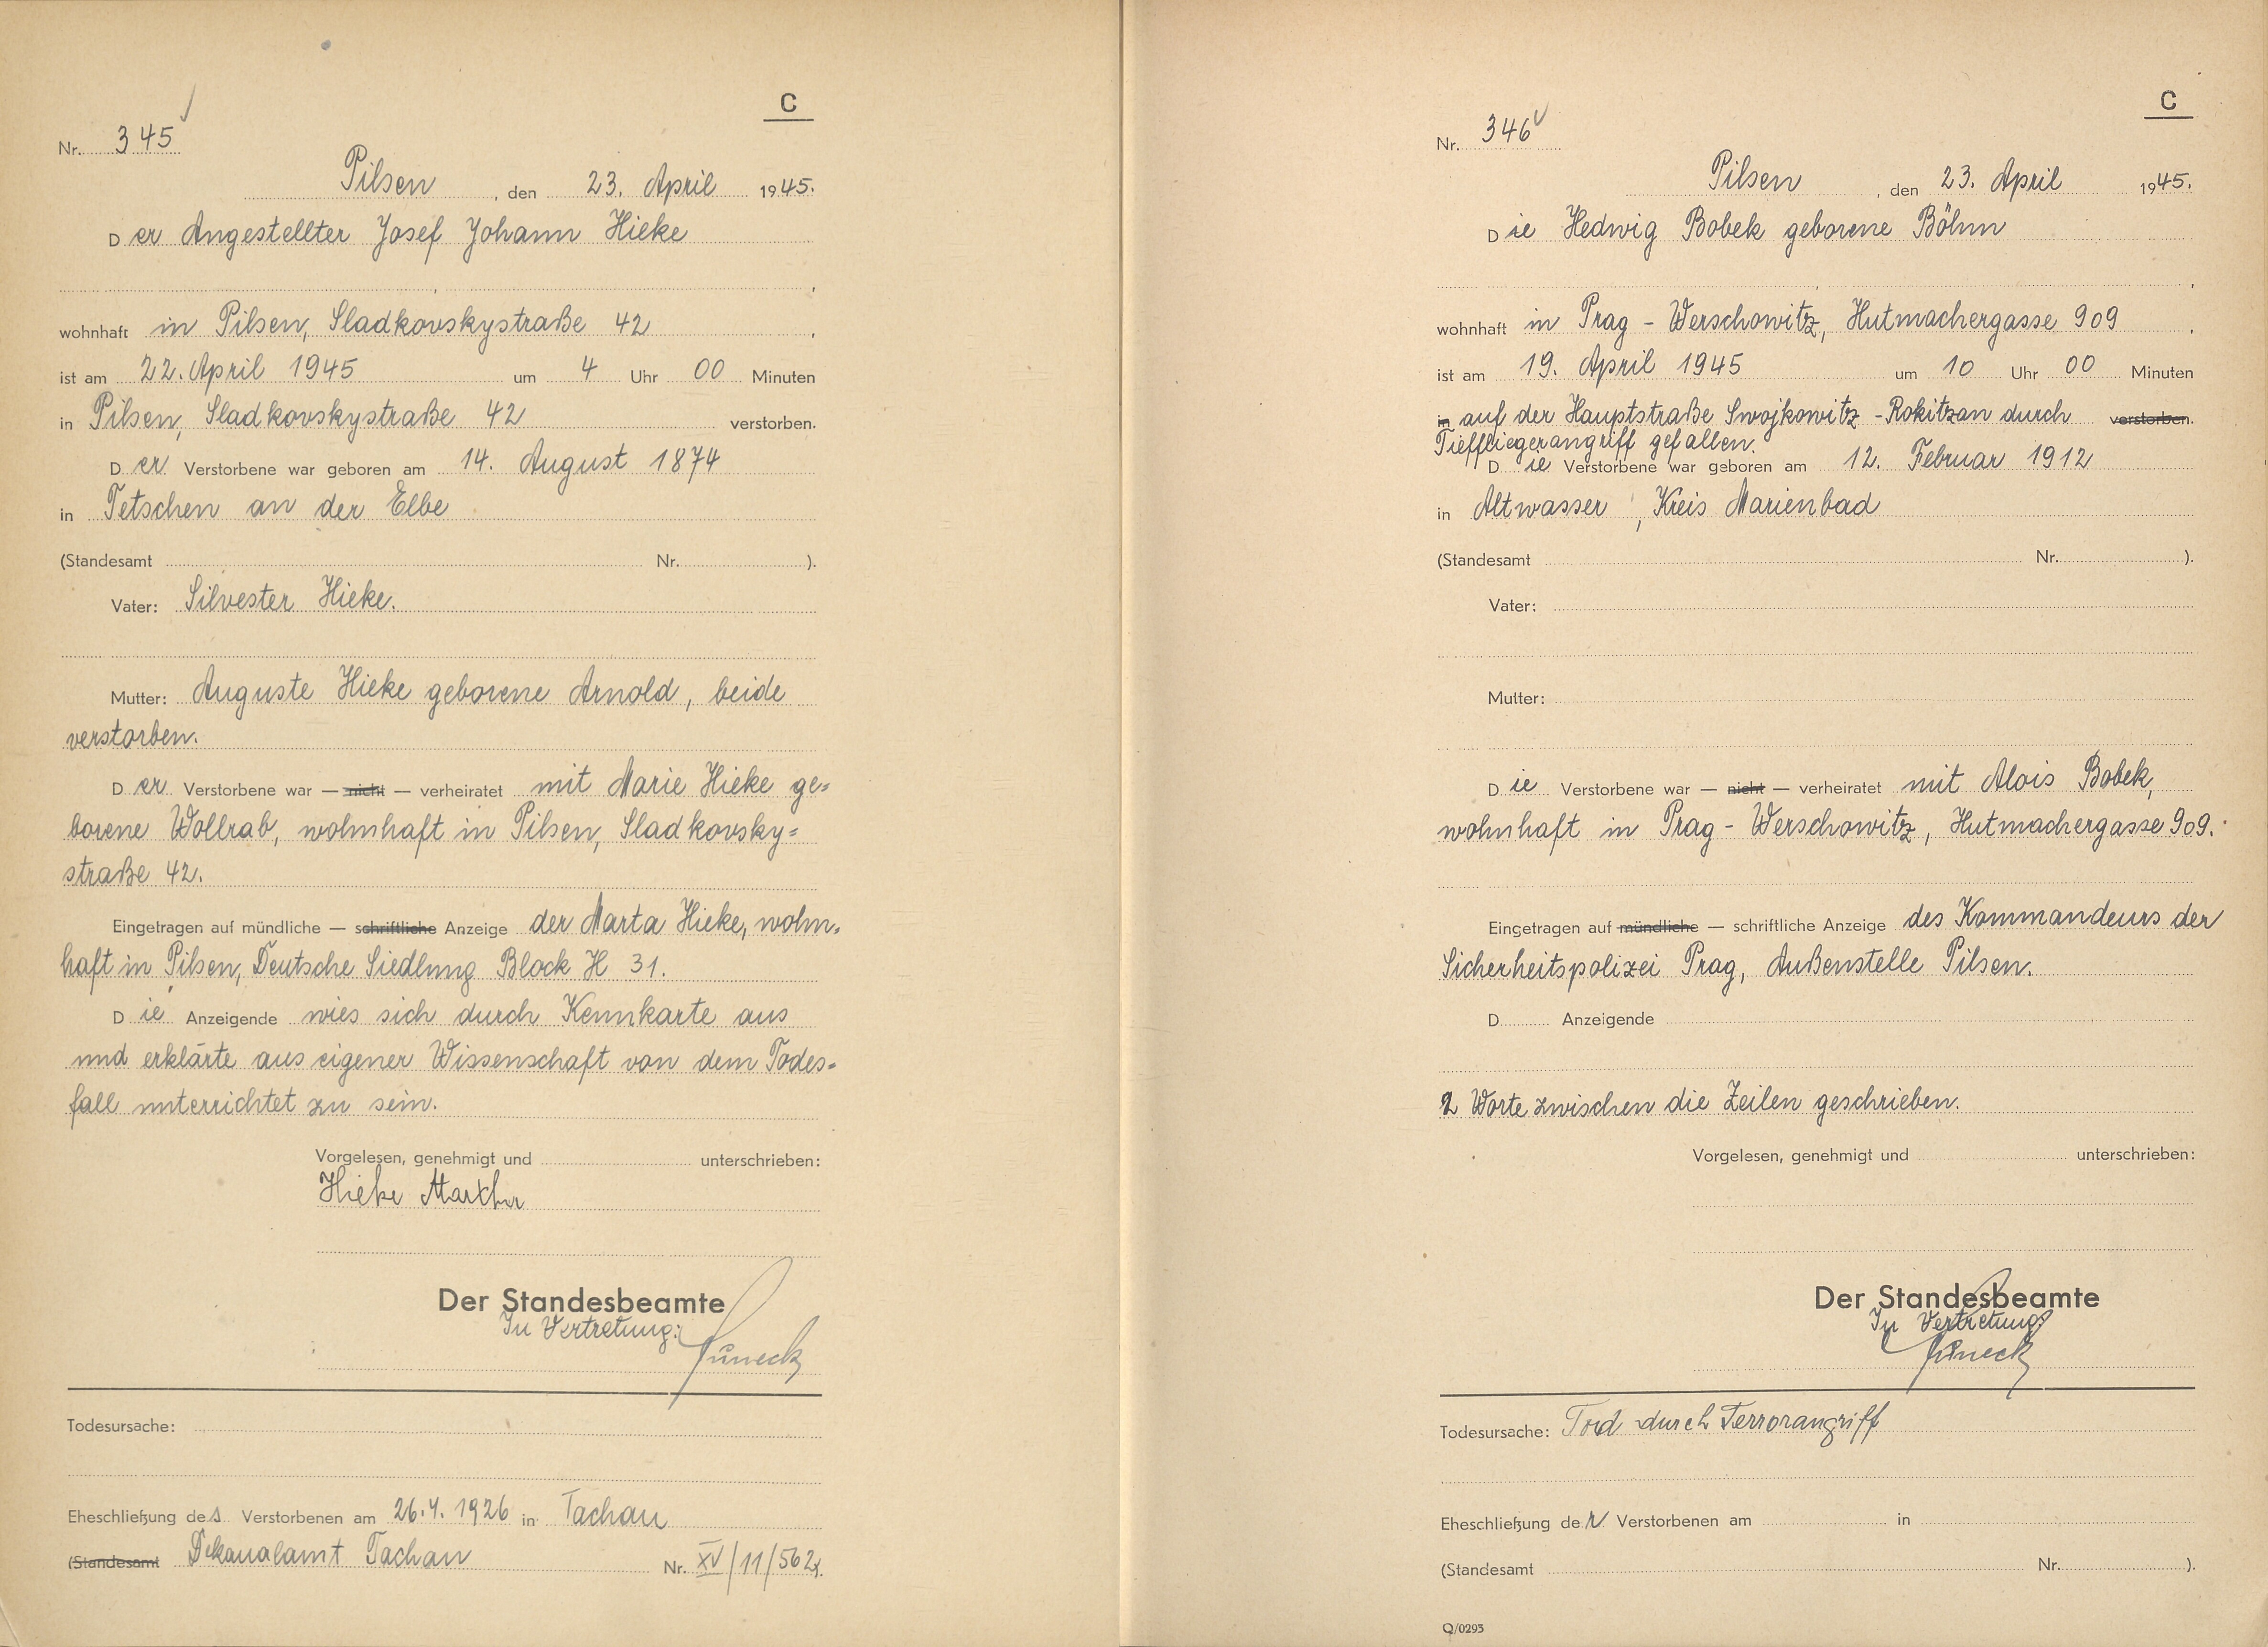 C
Nr. 345
Pilsen, den 23. April 1945.
Der Angestellter Josef Johann Hieke
wohnhaft in Pilsen, Sladkovskystraße 42,
ist am 22. April 1945 um 4 Uhr 00 Minuten
in Pilsen, Sladkovskystraße 42 verstorben.
Der Verstorbene war geboren am 14. August 1874
in Tetschen an der Elbe
(Standesamt Nr. ).
Vater: Silvester Hieke.
Mutter: Auguste Hieke geborene Arnold, beide
verstorben.
Der Verstorbene war — nicht — verheiratet mit Marie Hieke ge=
borene Wollrab, wohnhaft in Pilsen, Sladkovsky=
straße 42.
Eingetragen auf mündliche — schriftliche Anzeige der Marta Hieke, wohn=
haft in Pilsen, Deutsche Siedlung Block H 31.
Die Anzeigende wies sich durch Kennkarte aus
und erklärte aus eigener Wissenschaft von dem Todes=
fall unterrichtet zu sein.
Vorgelesen, genehmigt und unterschrieben:
Hieke Martha
Der Standesbeamte
In Vertretung:
Todesursache:
Eheschließung des Verstorbenen am 26.4.1926 in Tachau
(Standesamt Dekanalamt Tachau Nr. XV/11/562).
C
Nr. 346
Pilsen, den 23. April 1945.
Die Hedwig Bobek geborene Böhm
wohnhaft in Prag - Werschowitz, Hutmachergasse 909,
ist am 19. April 1945 um 10 Uhr 00 Minuten
in auf der Hauptstraße Swojkowitz - Rokitzan durch verstorben.
Tieffliegerangriff gefallen.
Die Verstorbene war geboren am 12. Februar 1912
in Altwasser, Kreis Marienbad
(Standesamt Nr. ).
Vater:
Mutter:
Die Verstorbene war — nicht — verheiratet mit Alois Bobek,
wohnhaft in Prag - Werschowitz, Hutmachergasse 909.
Eingetragen auf mündliche — schriftliche Anzeige des Kommandeurs der
Sicherheitspolizei Prag, Außenstelle Pilsen.
D Anzeigende
2 Worte zwischen die Zeilen geschrieben.
Vorgelesen, genehmigt und unterschrieben:
Der Standesbeamte
In Vertretung:
Todesursache: Tod durch Terrorangriff
Eheschließung der Verstorbenen am in
(Standesamt Nr. ).
Q/0293